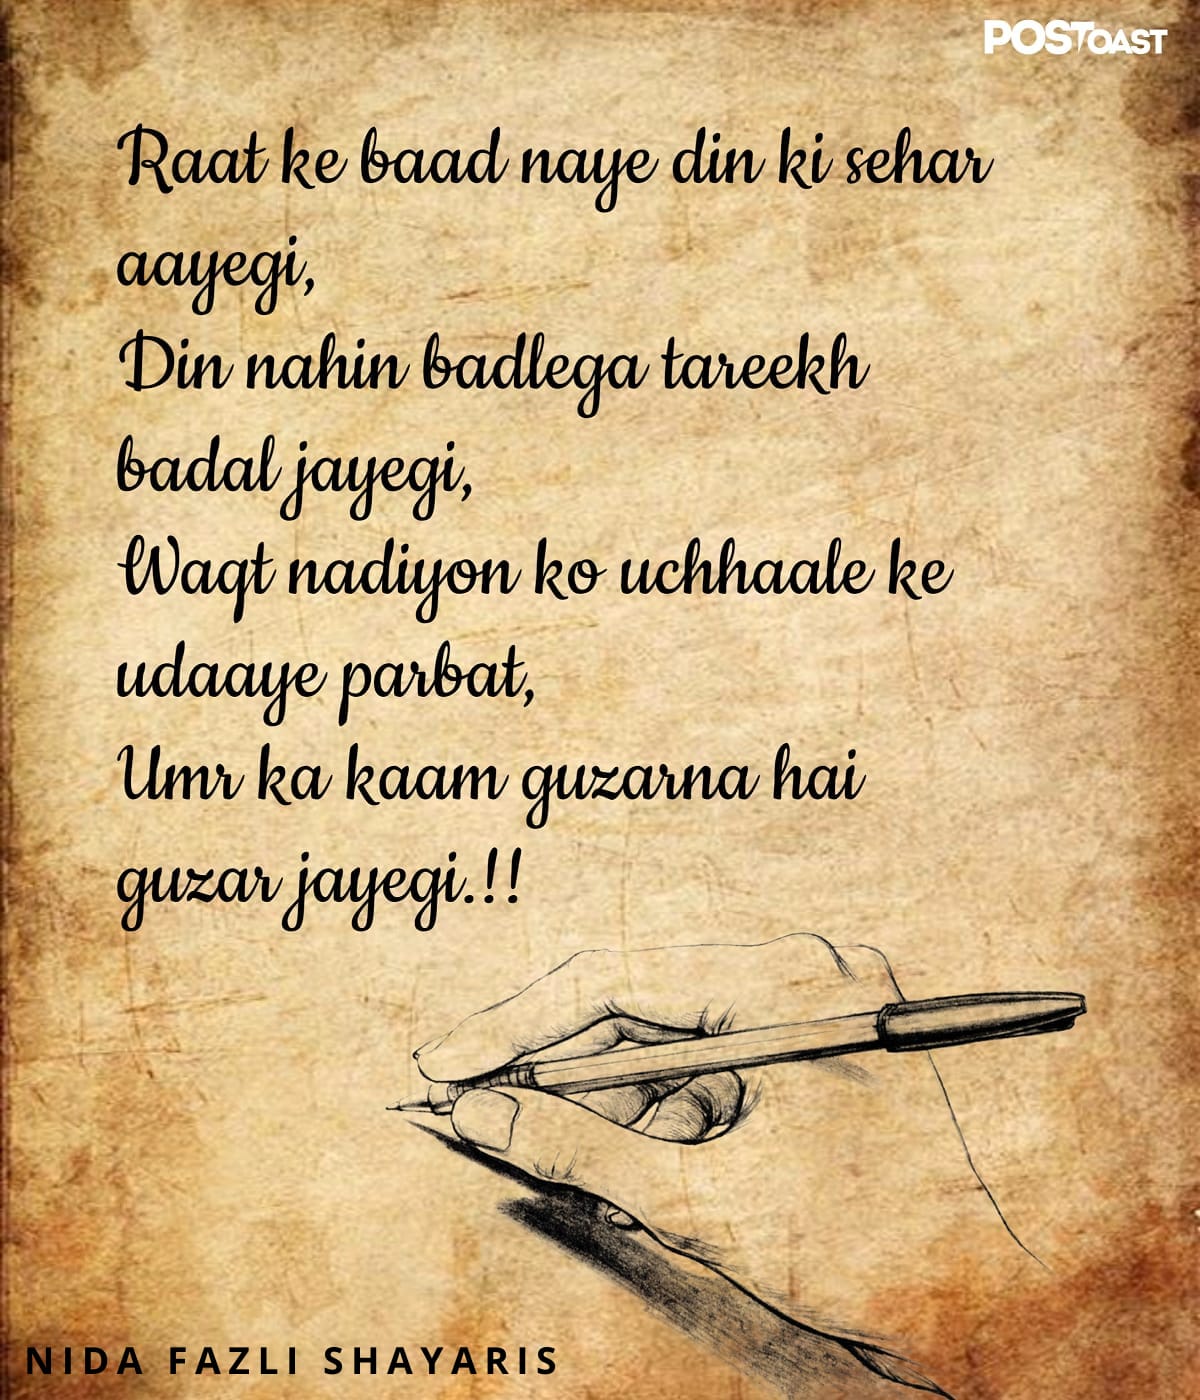 POSTOAST
Raat ke baad naye din ki sehar
aayegi,
Din nahin badlega tareekh
badal jayegi,
Waqt nadiyon ko uchhaale ke
udaaye parbat,
Umr ka kaam guzarna hai
guzar jayegi.!!
NIDA FAZLI SHAYARIS